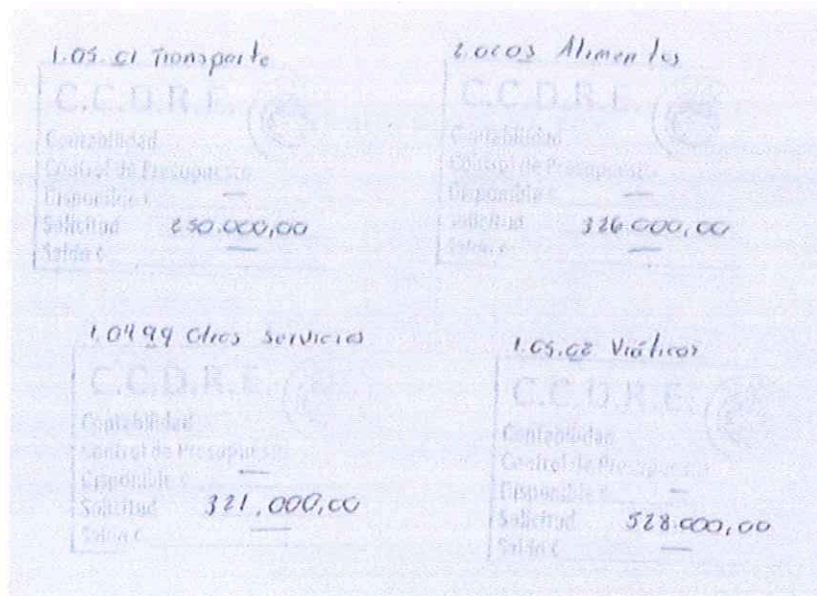 1.05.01 Transporte
C.C.D.R.E.
Contabilidad
Control de Presupuesto
Disponible ¢ —
Solicitud 250.000,00
Saldo ¢ —
2.0203 Alimentos
C.C.D.R.E.
Contabilidad
Control de Presupuesto
Disponible ¢ —
Solicitud 326.000,00
Saldo ¢ —
1.0499 Otros Servicios
C.C.D.R.E.
Contabilidad
Control de Presupuesto
Disponible ¢ —
Solicitud 321,000,00
Saldo ¢ —
1.05.02 Viáticos
C.C.D.R.E.
Contabilidad
Control de Presupuesto
Disponible ¢ —
Solicitud 528.000,00
Saldo ¢ —